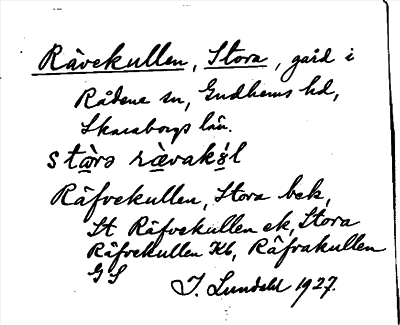 Rävekullen, Stora, gård i
Rådene sn, Gudhems hd,
Skaraborgs län.
stàrə rä̀vakə̀l
Räfvekullen, Stora bek,
St Räfvekullen ek, Stora
Räfvekullen Kb, Räfvakullen
GS
I. Lundahl 1927.